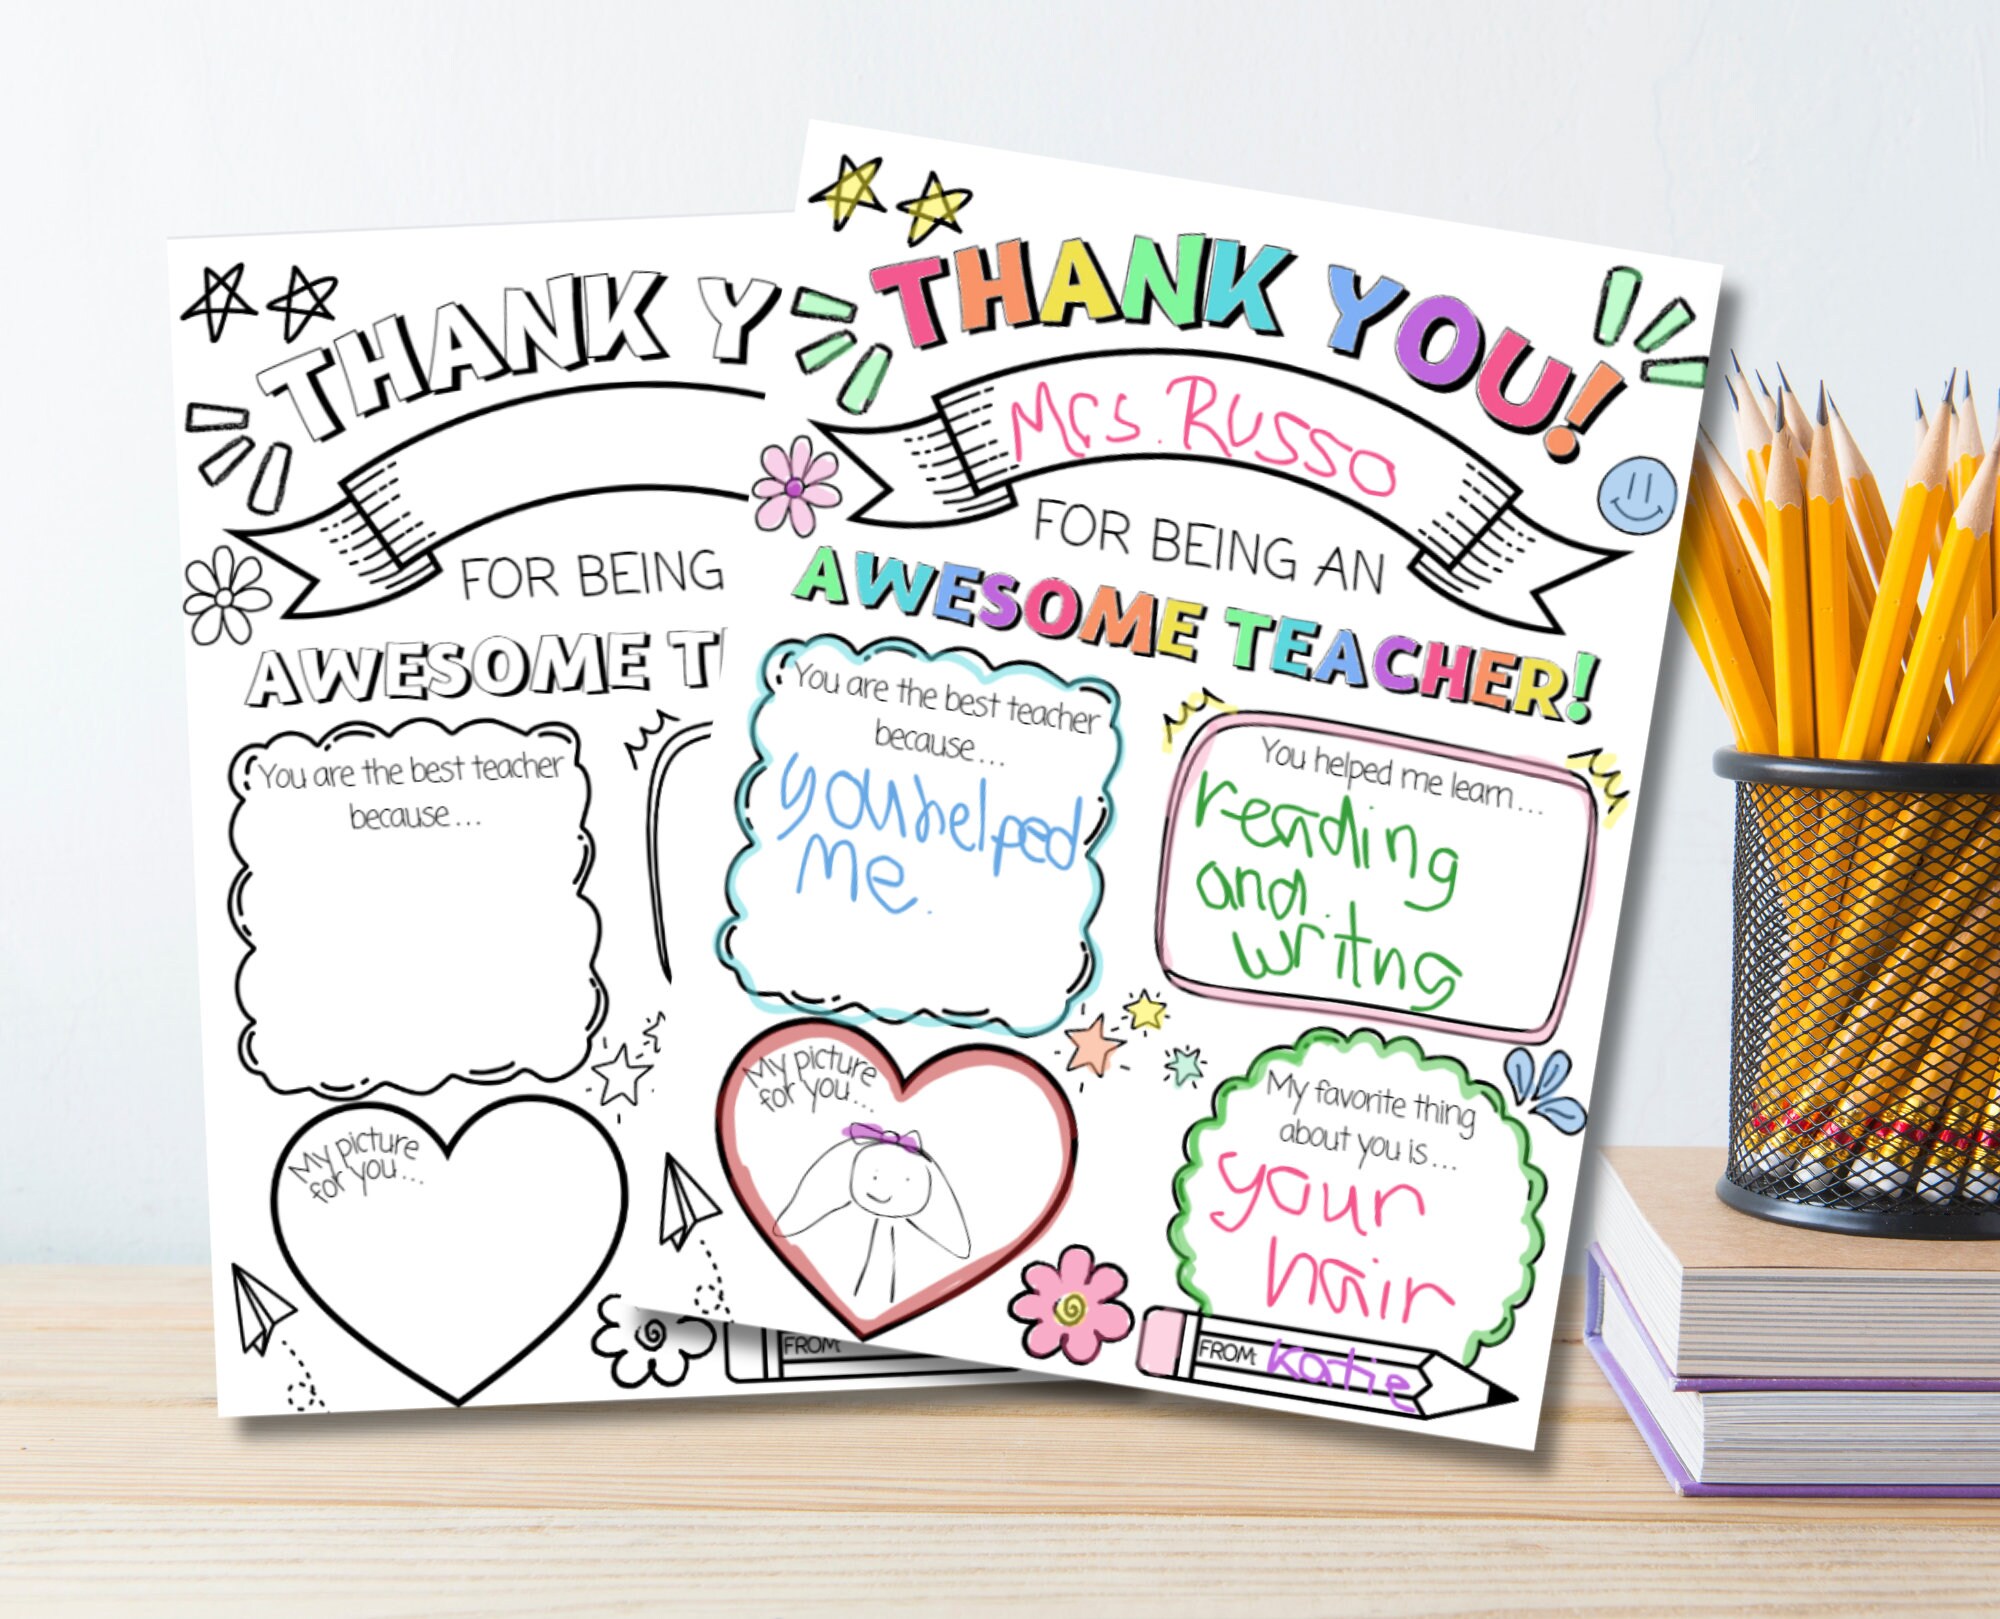 THANK Y
FOR BEING
AWESOME T
You are the best teacher
because...
My picture
for you...
FROM:
THANK YOU!
Mrs. Russo
FOR BEING AN
AWESOME TEACHER!
You are the best teacher
because...
you helped
me.
You helped me learn...
reading
and
writng
My picture
for you...
My favorite thing
about you is...
your
hair
FROM: Katie